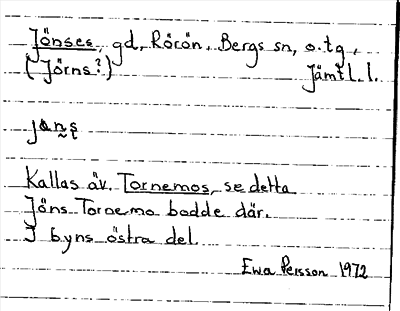 Jönses, gd, Rörön, Bergs sn, o. tg,
(Jörns?) Jämtl. l.
Kallas äv. Tornemos, se detta
Jöns Tornemo bodde där.
I byns östra del.
Ewa Persson 1972